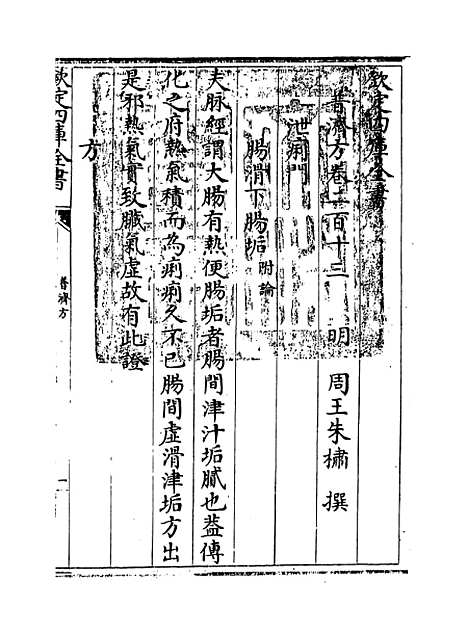 欽定四庫全書
普濟方卷二百十三　明　周王朱橚　撰
泄痢門
腸滑下腸垢附論
夫脉經謂大腸有熱便腸垢者腸間津汁垢膩也葢傳
化之府熱氣積而為痢痢久不已腸間虚滑津垢方出
是邪熱氣實致臟氣虚故有此證
方
欽定四庫全書
普濟方
一